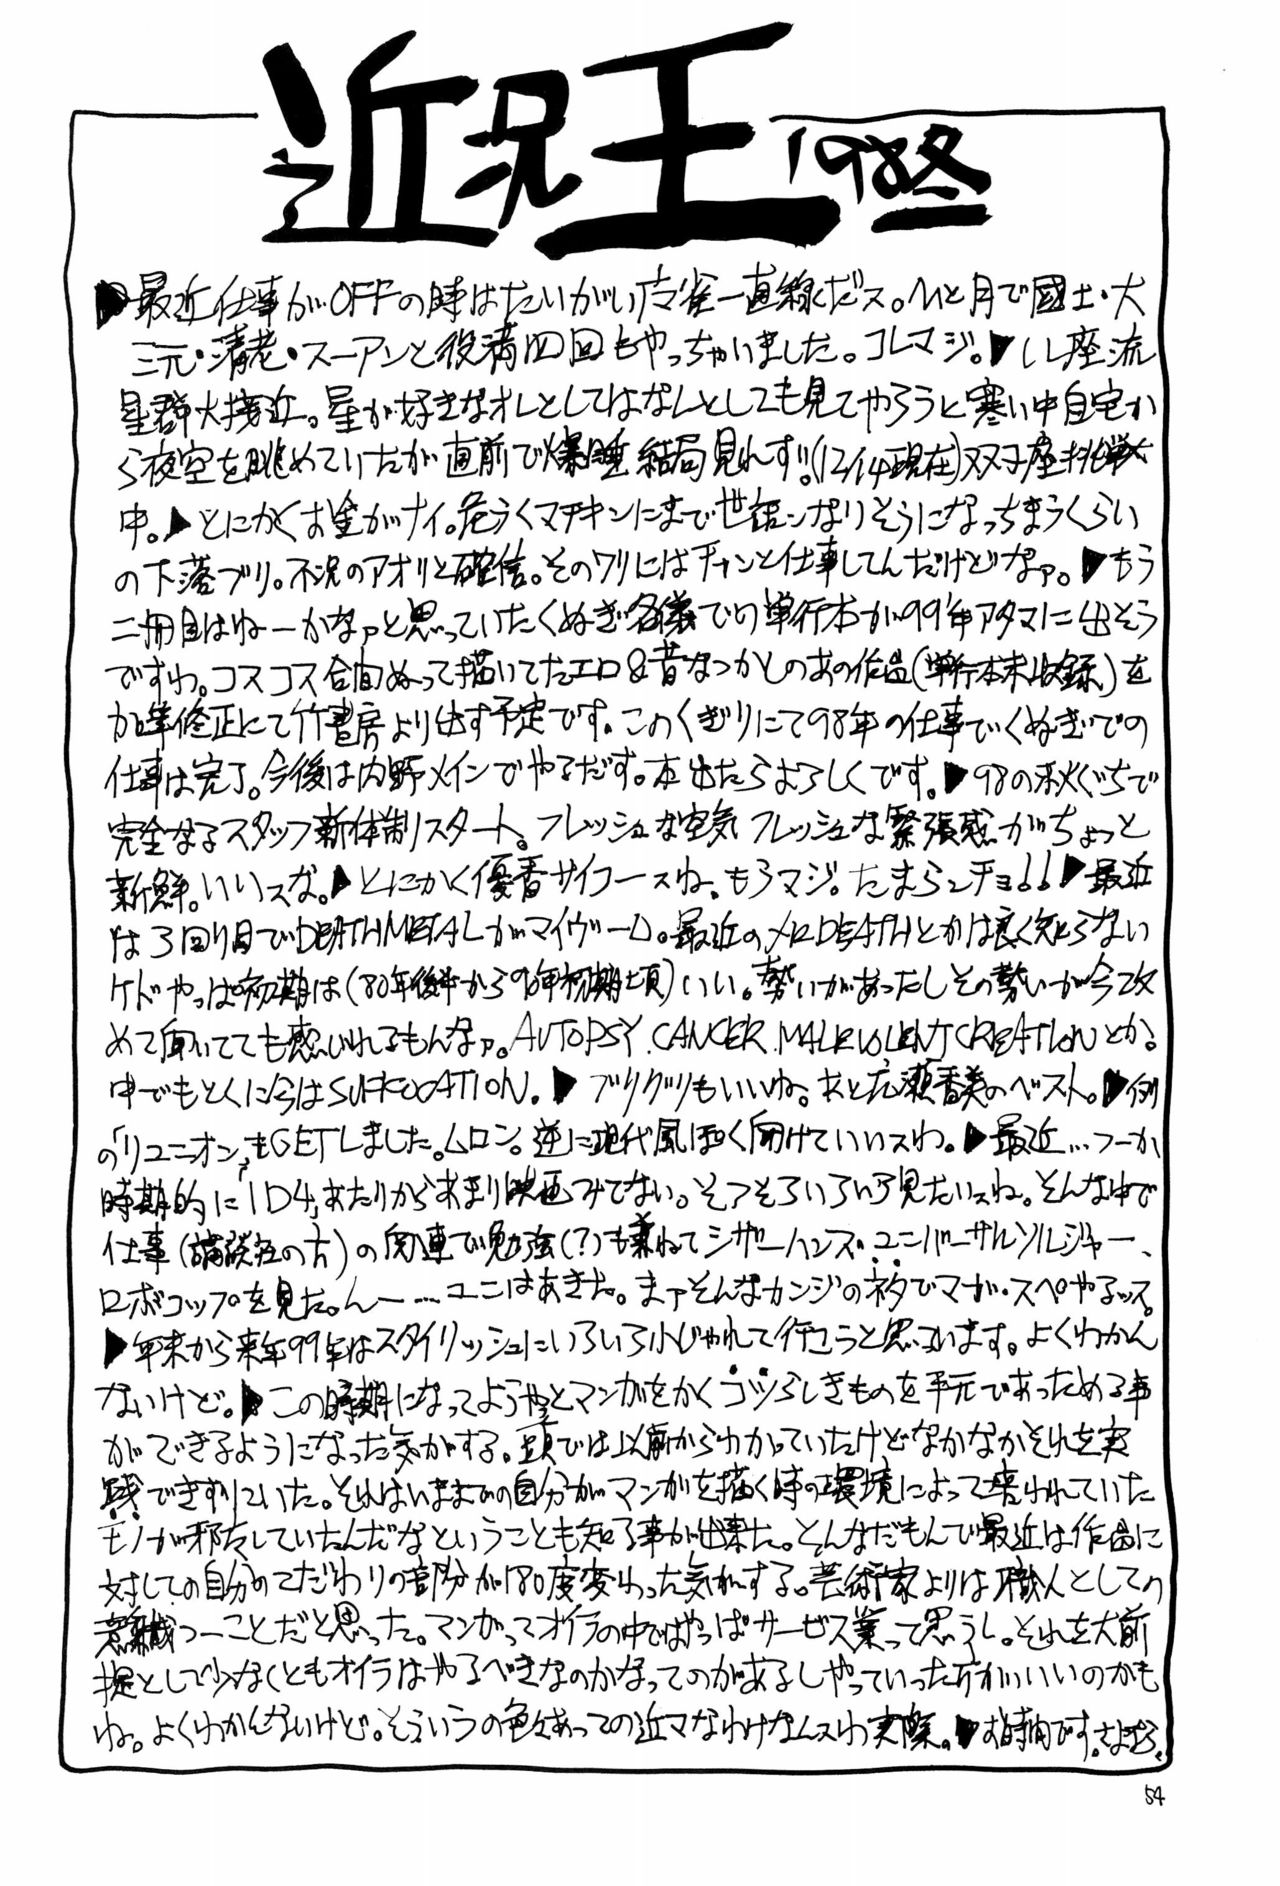 近況王 '98冬
▶最近仕事がOFFの時はたいがい麻雀一直線だス。ひと月で國士・大
三元・清老・スーアンと役満四回もやっちゃいました。コレマジ。▶しし座流
星群大接近。星が好きなオレとしてはなんとしても見てやろうと寒い中自宅か
ら夜空を眺めていたが直前で爆睡 結局見れず!!(12/14現在)双子座挑戦
中。▶とにかくお金がナイ。危うくマチキンにまで世話ンなりそうになっちまうくらい
の下落ブリ。不況のアオリと確信。そのワリにはチャンと仕事してんだけどなァ。▶もう
二冊目はねーかなァと思っていたくぬぎ名義での単行本が99年アタマに出そう
ですわ。コスコス合間ぬって描いてたエロ&昔なつかしのあの作品(単行本未収録)を
加筆修正にて竹書房より出す予定です。このくぎりにて98年の仕事でくぬぎでの
仕事は完了。今後は内野メインでやるだす。本出たらよろしくです。▶98の秋ぐちで
完全なるスタッフ新体制スタート。フレッシュな空気 フレッシュな緊張感がちょっと
新鮮。いいスな。▶とにかく優香サイコースね、もうマジ。たまらンチョ!!▶最近
は3回り目でDEATHMETALがマイヴーム。最近のメロDEATHとかは良く知らない
ケドやっぱ初期は(80年後半から90年初期頃)いい。勢いがあったしその勢いが今改
めて聞いてても感じれるもんなァ。AUTOPSY.CANCER.MALEVOLENTCREATIONとか。
中でもとくに今はSUFFOCATION.▶ブリグリもいいね。あと広瀬香美のベスト。▶例
の「リユニオン」もGETしました。ムロン。逆に現代風ぽく聞けていいスわ。▶最近…つーか
時期的に「ID4」あたりからあまり映画みてない。そろそろいろいろ見たいスね。そんな中で
仕事(講談社の方)の関連で勉強(?)も兼ねてシザーハンズ・ユニバーサルソルジャー、
ロボコップを見た。んー…ユニはあきた。まァそんなカンジのネタでマガ・スペやるッス。
▶年末から来年99年はスタイリッシュにいろいろ小じゃれて行こうと思ってます。よくわかん
ないけど。▶この時期になってようやっとマンガをかくコツらしきものを手元であっためる事
ができるようになった気がする。頭では以前からわかっていたけどなかなかそれを実
践できずにいた。それはいままでの自分がマンガを描く時の環境によって培われていた
モノが邪魔していたんだなということも知る事が出来た。そんなだもんで最近は作品に
対しての自分のこだわりの部分が180度変わった気がする。芸術家よりは職人としての
意識つーことだと思った。マンガってオイラの中ではやっぱサービス業って思うし。それを大前
提として少なくともオイラはやるべきなのかなってのがあるしやっていった方がいいのかも
ね。よくわかんないけど。そういうの色々あっての近マなわけなんスわ実際。▶お時間です。さよなら。
54